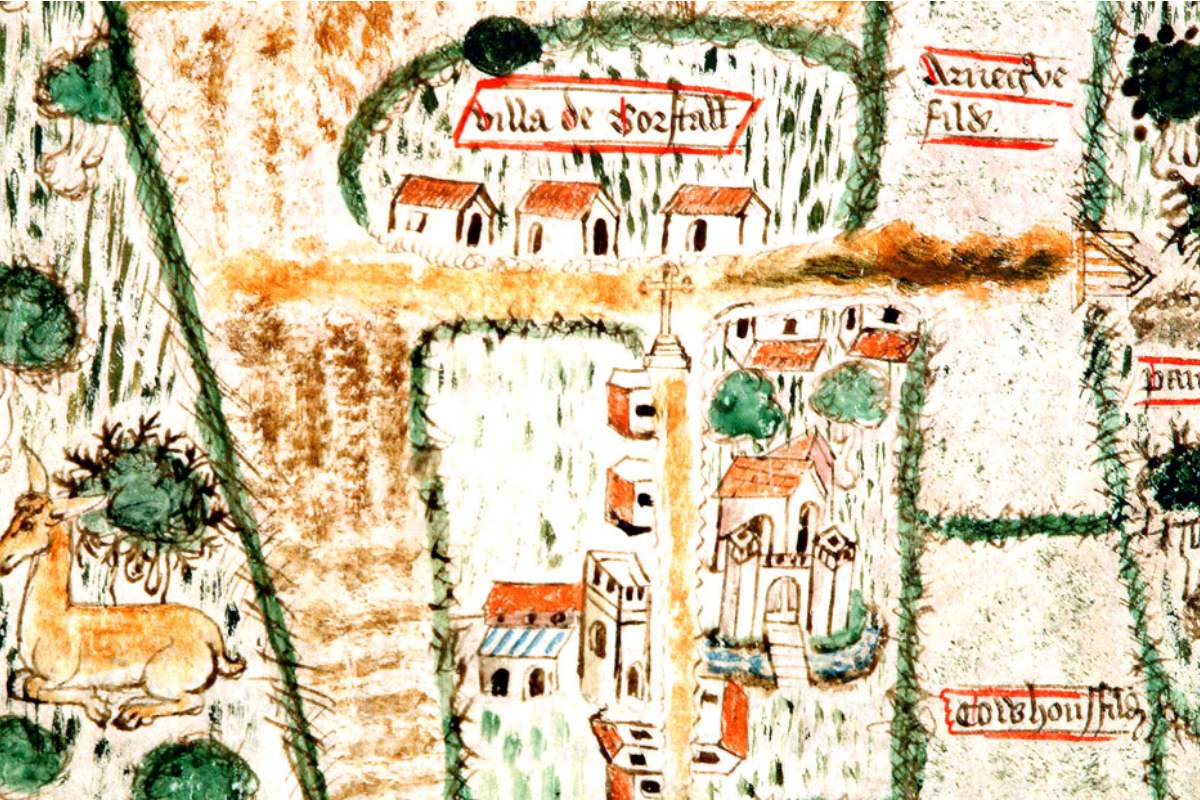 villa de Borstall
Arnegrve
fild.
Cowhousfild